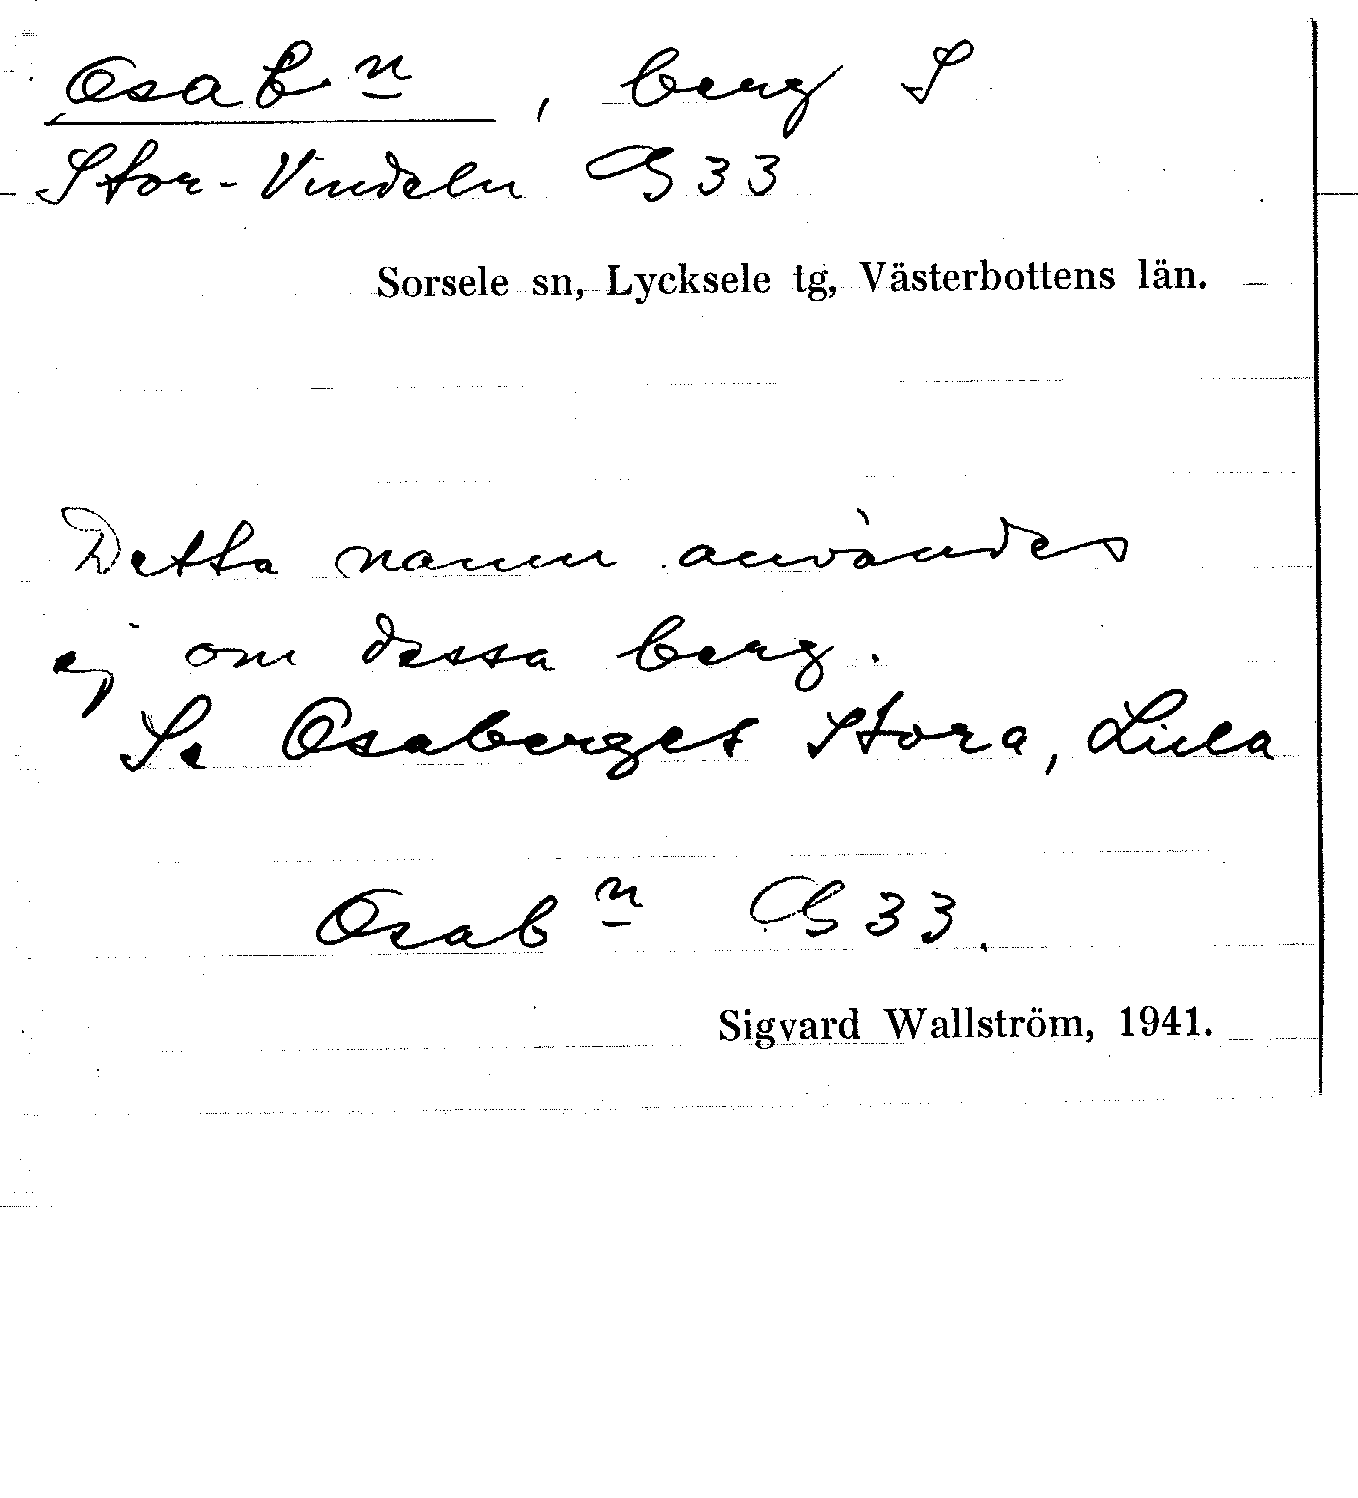 Osabn, berg S
Stor-Vindeln GS 33
Sorsele sn, Lycksele tg, Västerbottens län.
Detta namn användes
ej om dessa berg.
Se Osaberget Stora, Lilla
Osabn GS 33.
Sigvard Wallström, 1941.